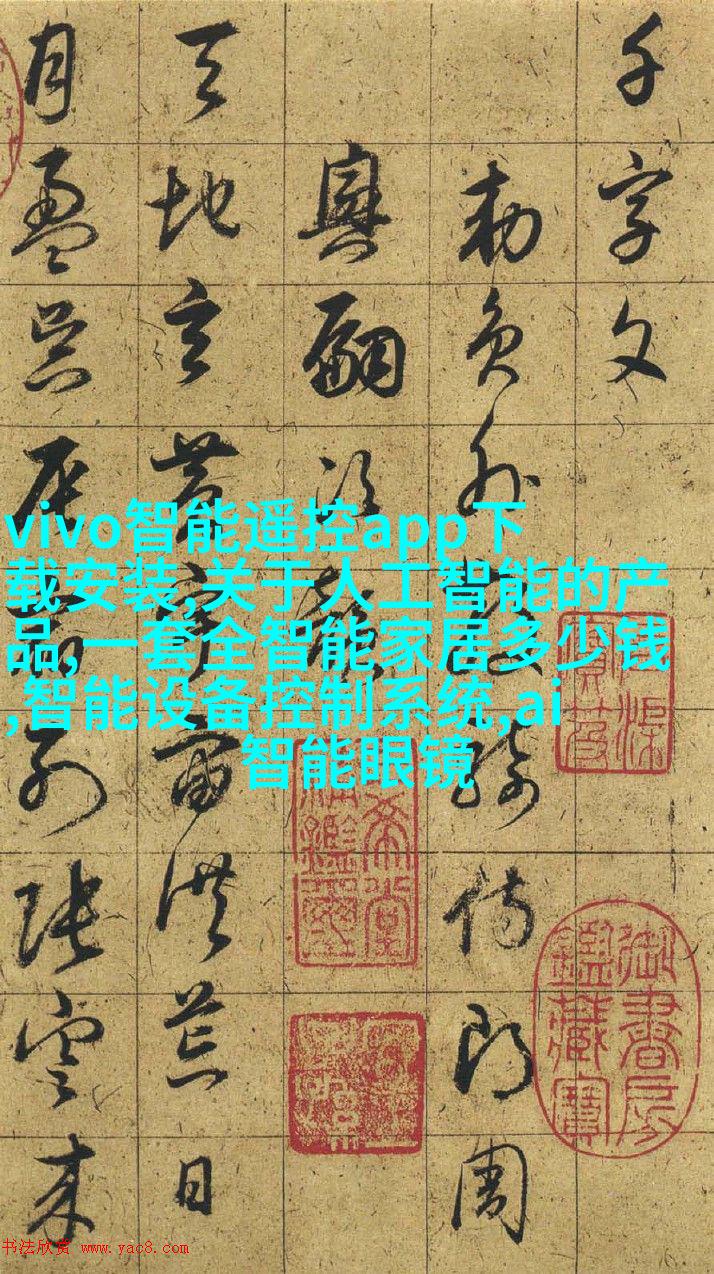 千字文
勅員外散騎侍郎周
興嗣次韻
天地玄黄宇宙洪荒日
月盈昃辰宿列張寒來
vivo智能遥控app下
载安装,关于人工智能的产
品,一套全智能家居多少钱
,智能设备控制系统,ai
智能眼镜
御書房
鑑藏寶
书法欣赏 www.yac8.com